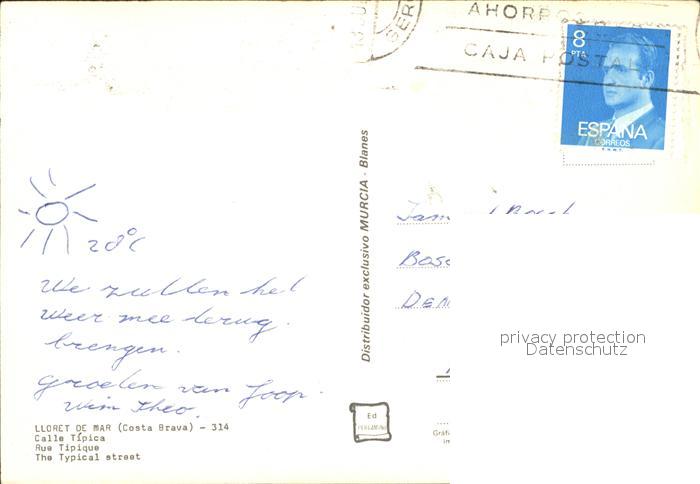 AHORRO
CAJA POSTAL
8
PTA
ESPAÑA
CORREOS
Distribuidor exclusivo MURCIA - Blanes
28°C
We zullen het
weer mee terug
brengen.
Groeten van Joop
Wim Theo.
Fam
Bos
DEN
privacy protection
Datenschutz
Ed
LLORET DE MAR (Costa Brava) - 314
Calle Típica
Rue Tipique
The Typical street
Grafi